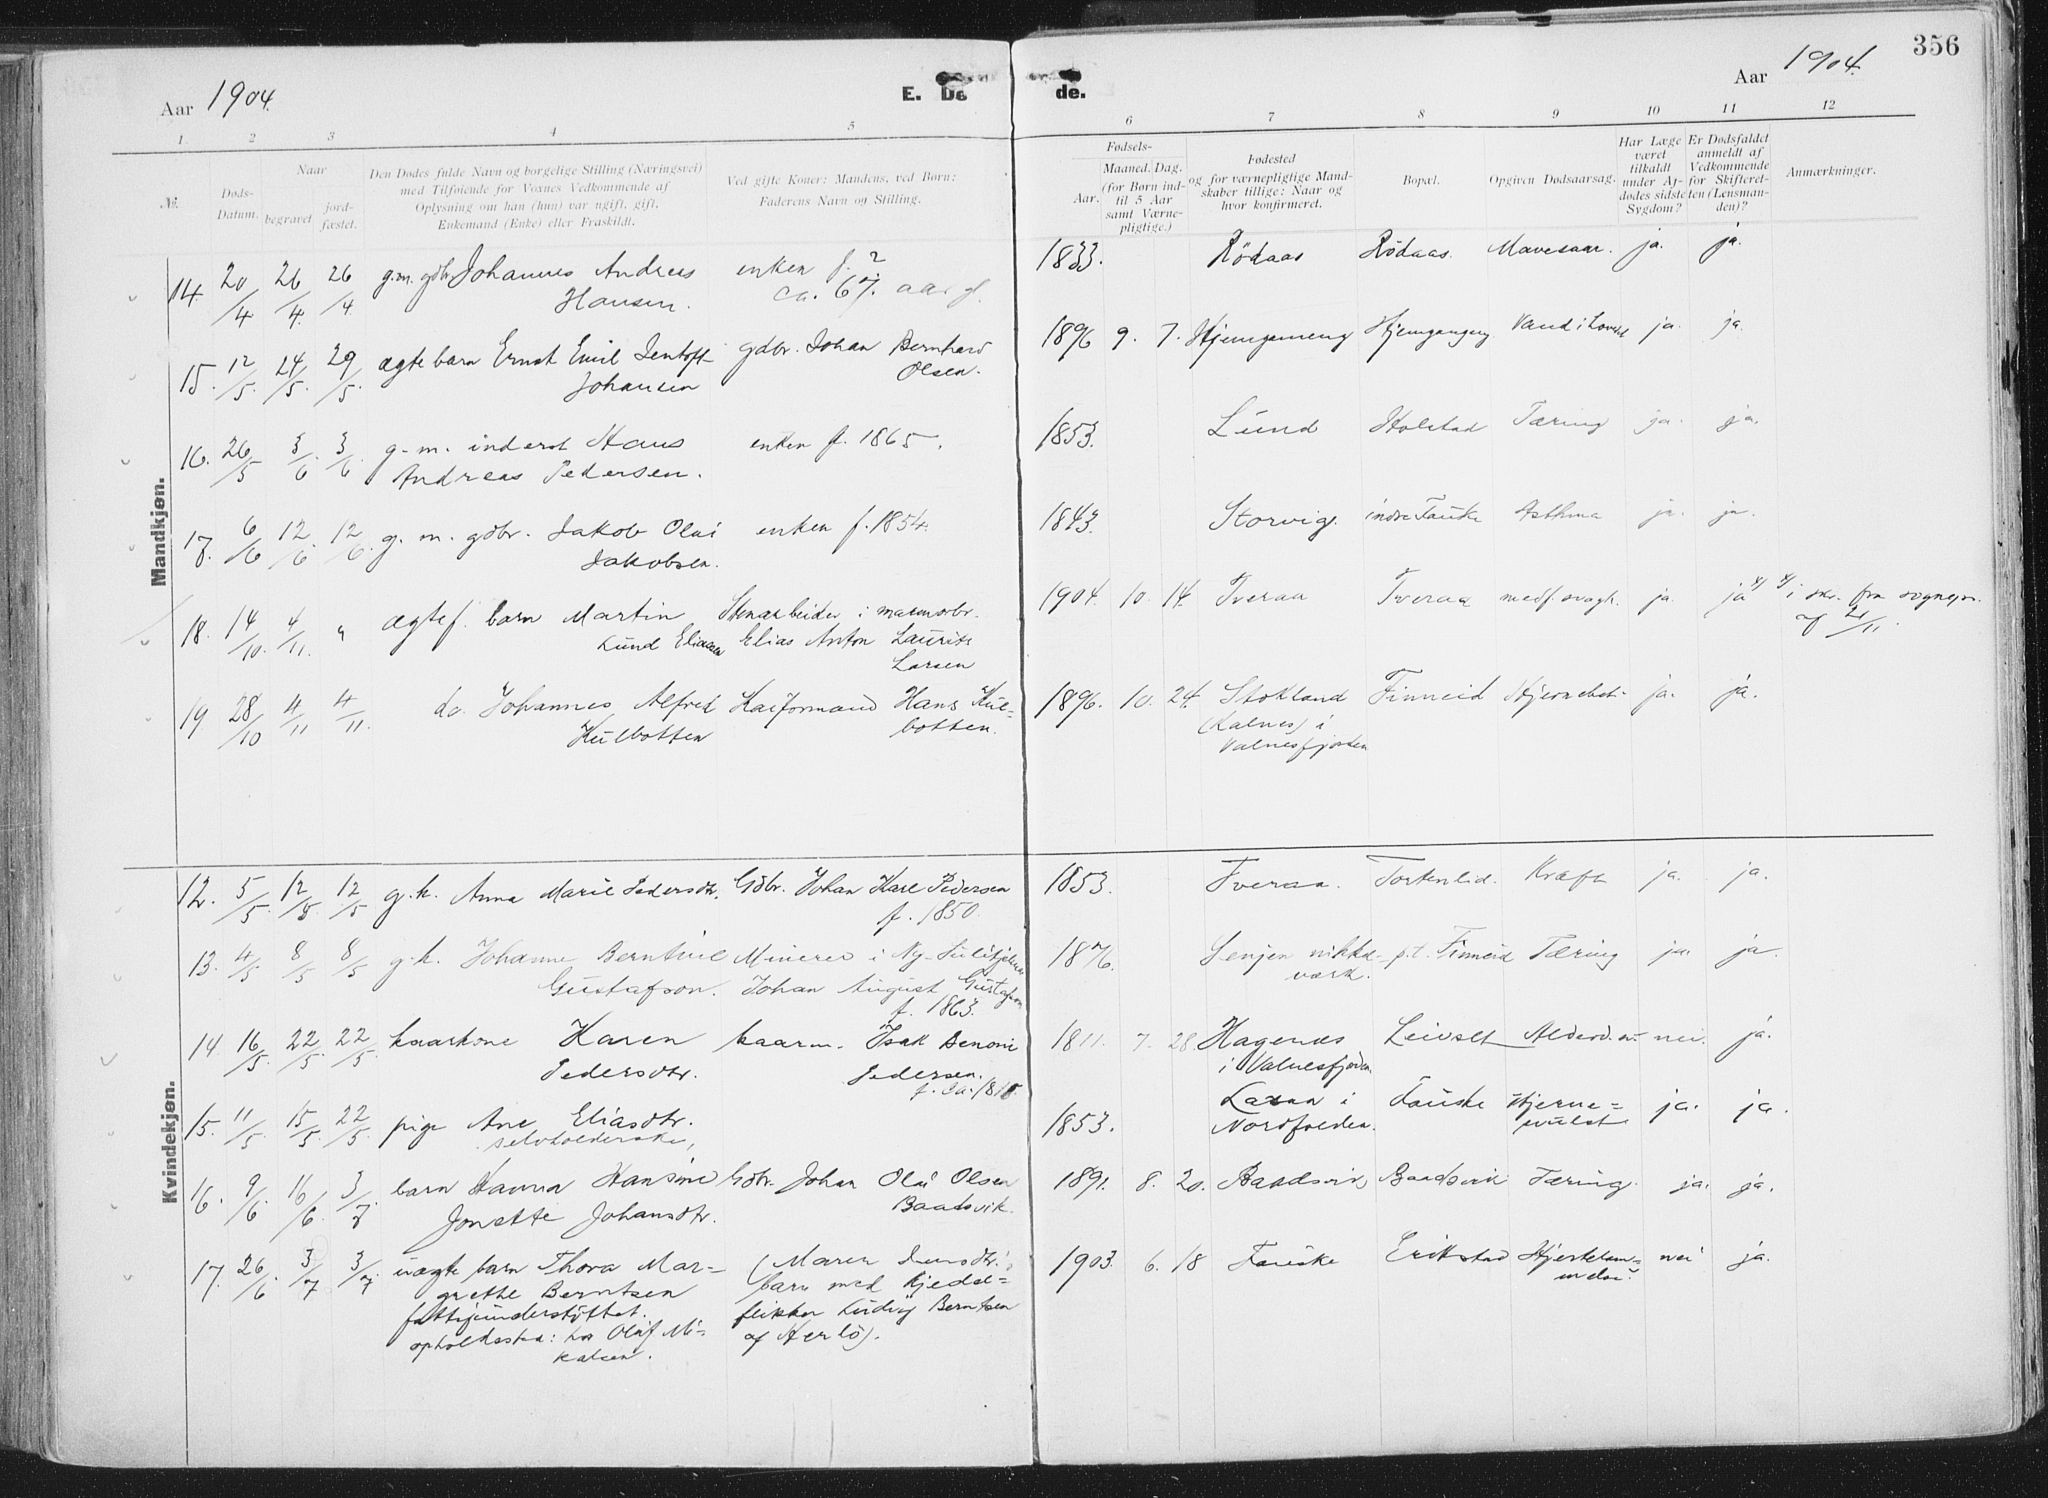 356
Aar 1904.
E. Dø de.
Aar 1904.
1. 2 3 4 5 6 7 8 9 10 11 12
№.
Døds-
Datum.
Naar
begravet
jord-
fæstet.
Den Dødes fulde Navn og borgelige Stilling (Næringsvei)
med Tilføiende for Voxnes Vedkommende af
Oplysning om han (hun) var ugift, gift,
Enkemand (Enke) eller Fraskildt.
Ved gifte Koner: Mandens, ved Børn:
Faderens Navn og Stilling.
Fødsels-
Aar.
Maaned. Dag.
(for Børn ind-
til 5 Aar
samt Værne-
pligtige.)
Fødested
og for værnepligtige Mand-
skaber tillige: Naar og
hvor konfirmeret.
Bopæl.
Opgiven Dødsaarsag.
Har Læge
været
tilkaldt
under Af-
dødes sidste
Sygdom?
Er Dødsfaldet
anmeldt af
Vedkommende
for Skifteret-
ten (Lensman-
den)?
Anmærkninger.
Mandkjøn.
14 20/4 26/4. 26/4 g.m. gdbr. Johannes Andreas enken f. ? 1833. Rödaas Rödaas. Mavesaar. ja. ja.
Hansen. ca. 67. aar gl.
15. 12/5. 24/5. 29/5. ægte barn Ernst Emil Jentoft gdbr. Johan Bernhard 1896 9. 7. Hjemgameng Hjemgangeng Vand i hovedet ja. ja.
Johansen Olsen.
16. 26/5 3/6. 3/6. g. m. inderst Hans enken f. 1865. 1853. Lund Holstad Tæring ja. ja.
Andreas Pedersen.
17. 6/6 12/6. 12/6. g. m. gdbr. Jakob Olai enken f. 1854. 1843. Storvig. indre Fauske Asthma ja. ja.
Jakobsen.
18. 14/10. 4/11. " ægtef. barn Martin Stenarbeider i marmorbr. 1904. 10. 14. Tveraa Tveraa medf. svagh. ja. ja i skr. fra sognepr.
Lund Eliassen Elias Anton Laurits af 2/11.
Larsen
19 28/10 4/11 4/11. do. Johannes Alfred Kaiformand Hans Kul- 1896. 10. 24. Stokland Finneid Hjernebet. ja. ja.
Kulbotten botten. (Kalnes) i
Valnesfjorden
Kvindekjøn.
12. 5/5. 12/5 12/5 g. k. Anna Marie Pedersdtr. Gdbr. Johan Karl Pedersen 1853. Tveraa. Tortenlid. Kræft ja. ja.
f. 1850.
13. 4/5 8/5 8/5 g. k. Johanne Berntine Minerer i Ny-Sulitjelma 1876. Senjen nikkel- p.t. Finneid Tæring ja. ja
Gustafson. Johan August Gustafson værk.
f. 1863.
14 16/5. 22/5. 22/5. kaarkone Karen kaarm. Isak Benoni 1811. 7. 28. Hagenes Leivset Alderd. nei. ja.
Pedersdtr. Pedersen. i Valnesfjorden
f. ca. 1815
15. 11/5. 15/5. 22/5. pige Ane Eliasdtr. 1853. Laxaa i Fauske Hjerne= ja. ja.
selvholderske, Nordfolden. svulst
16. 9/6. 16/6 3/7. barn Hanna Hansine Gdbr. Johan Olai Olsen 1891. 8. 20. Baadsvik Baadsvik Tæring. ja. ja.
Jonette Johansdtr. Baadsvik.
17. 26/6. 3/7 3/7. uægte barn Thora Mar- (Maren Jensdtr., 1903. 6. 18 Fauske Erikstad Hjertelam- nei ja.
grethe Berntsen barn med Kjedel=
fattigunderstöttet. flikker Ludvig Berntsen
opholdssted: hos Olaf Mi- af Herlö).
kalsen.